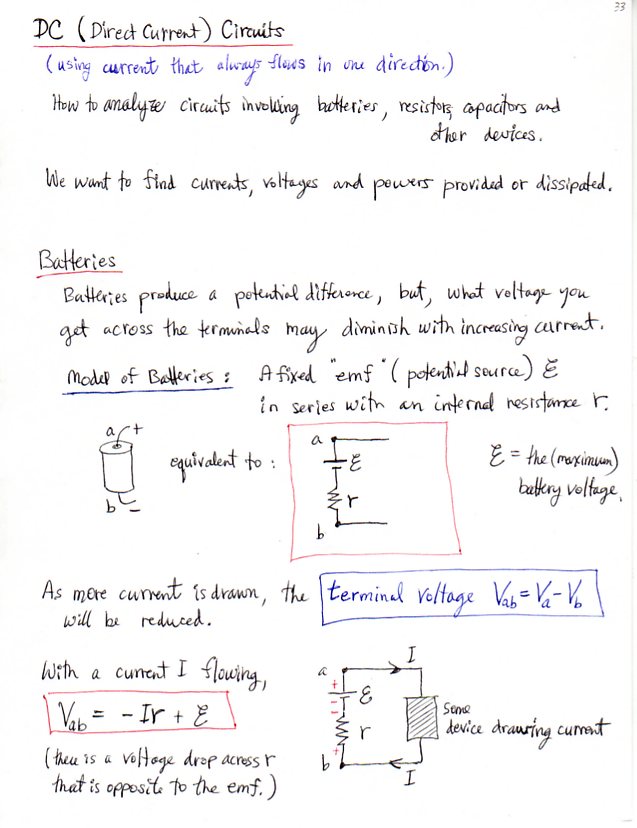 33
DC (Direct Current) Circuits
(using current that always flows in one direction.)
How to analyze circuits involving batteries, resistors, capacitors and
other devices.
We want to find currents, voltages and powers provided or dissipated.
Batteries
Batteries produce a potential difference, but, what voltage you
get across the terminals may diminish with increasing current.
Model of Batteries : A fixed "emf" (potential source) ℰ
in series with an internal resistance r.
a +
b −
equivalent to :
a
ℰ
r
b
ℰ = the (maximum)
battery voltage.
As more current is drawn, the terminal voltage Vab = Va − Vb
will be reduced.
With a current I flowing,
Vab = − Ir + ℰ
(there is a voltage drop across r
that is opposite to the emf.)
a I
+
ℰ
−
−
r
+
b I
Some
device drawing current